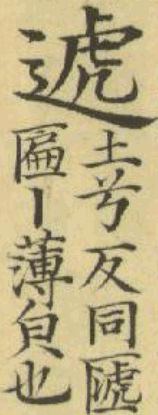 遞
土兮反同㔸
匾丨薄皃也